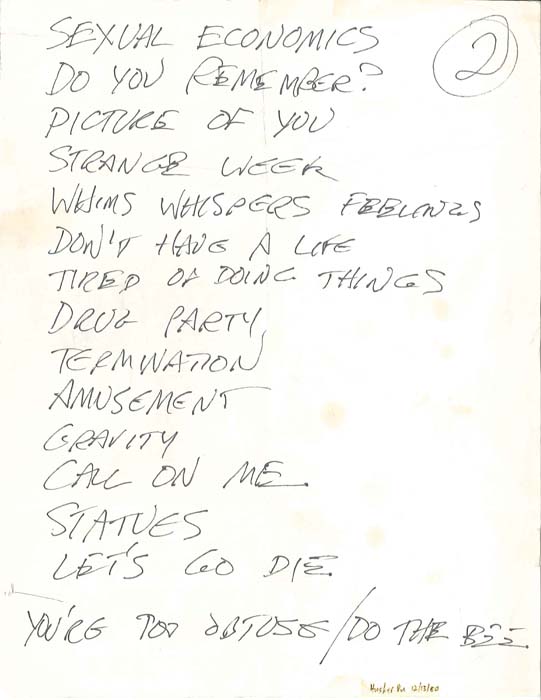 SEXUAL ECONOMICS
2
DO YOU REMEMBER?
PICTURE OF YOU
STRANGE WEEK
WHIMS WHISPERS FEELINGS
DON'T HAVE A LIFE
TIRED OF DOING THINGS
DRUG PARTY
TERMINATION
AMUSEMENT
GRAVITY
CALL ON ME
STATUES
LET'S GO DIE
YOU'RE TOO OBTUSE/DO THE BEE
Husker Du 12/13/80